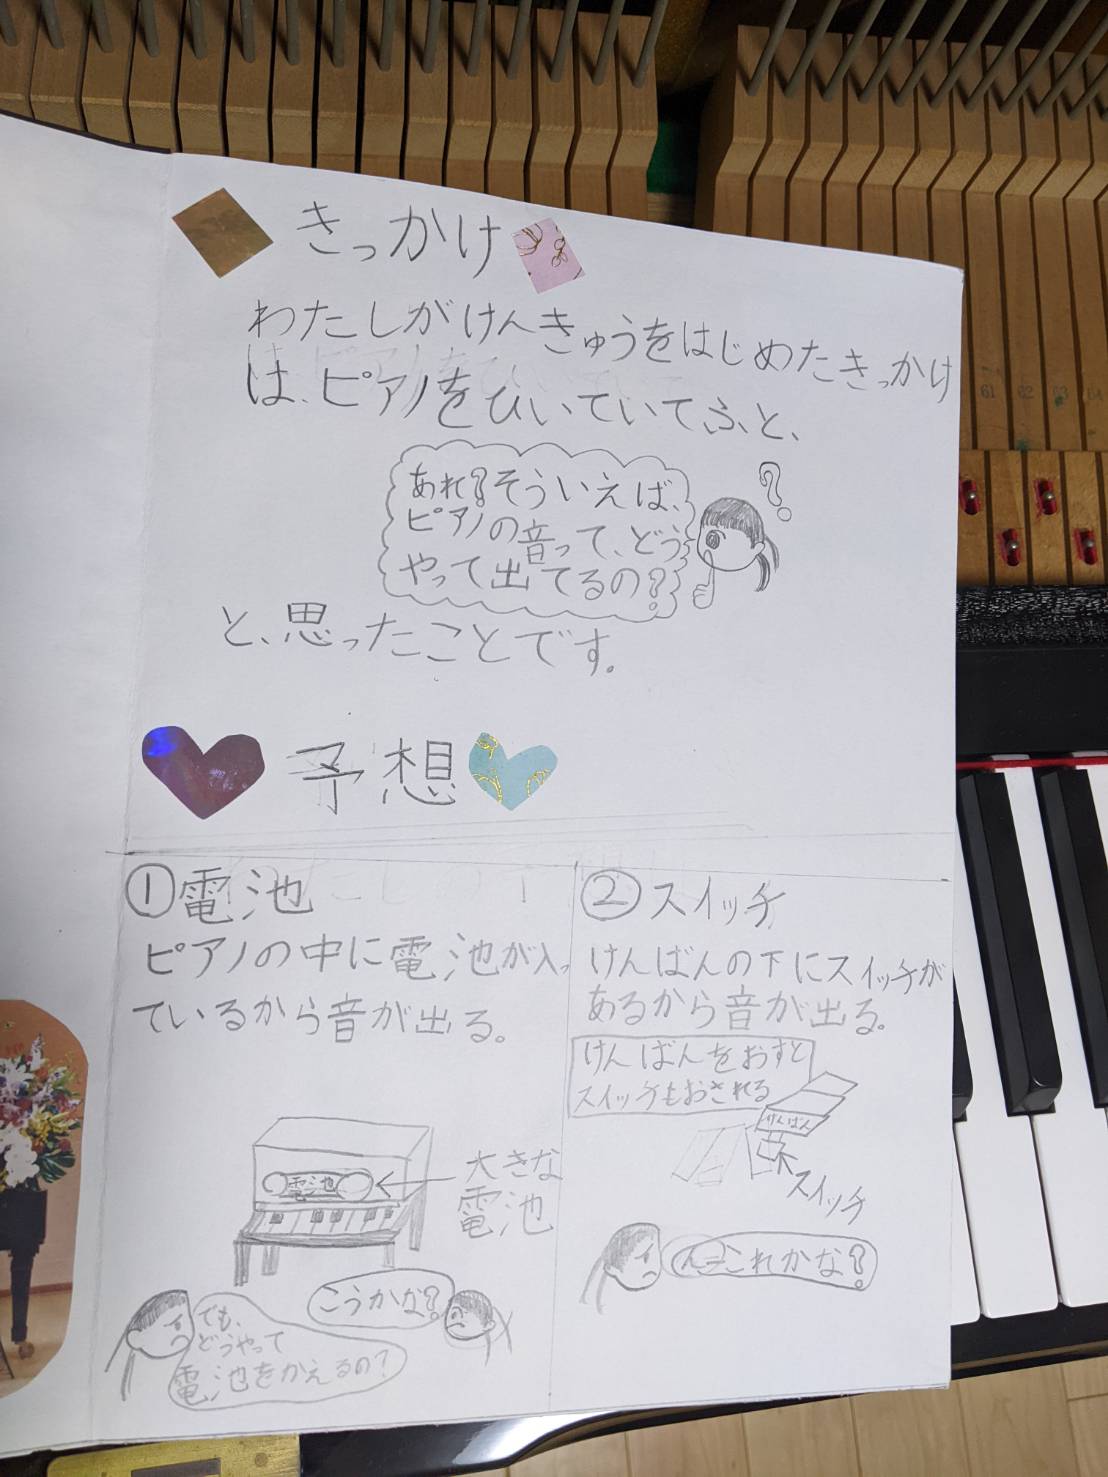 きっかけ
わたしがけんきゅうをはじめたきっかけ
は、ピアノをひいていてふと、
あれ?そういえば、
ピアノの音って、どう
やって出てるの?
?
と、思ったことです。
予想
①電池
ピアノの中に電池が入っ
ているから音が出る。
電池
大きな
電池
こうかな?
でも、
どうやって
電池をかえるの?
②スイッチ
けんばんの下にスイッチが
あるから音が出る。
けんばんをおすと
スイッチもおされる
けんばん
スイッチ
これかな?
61 62 63 64